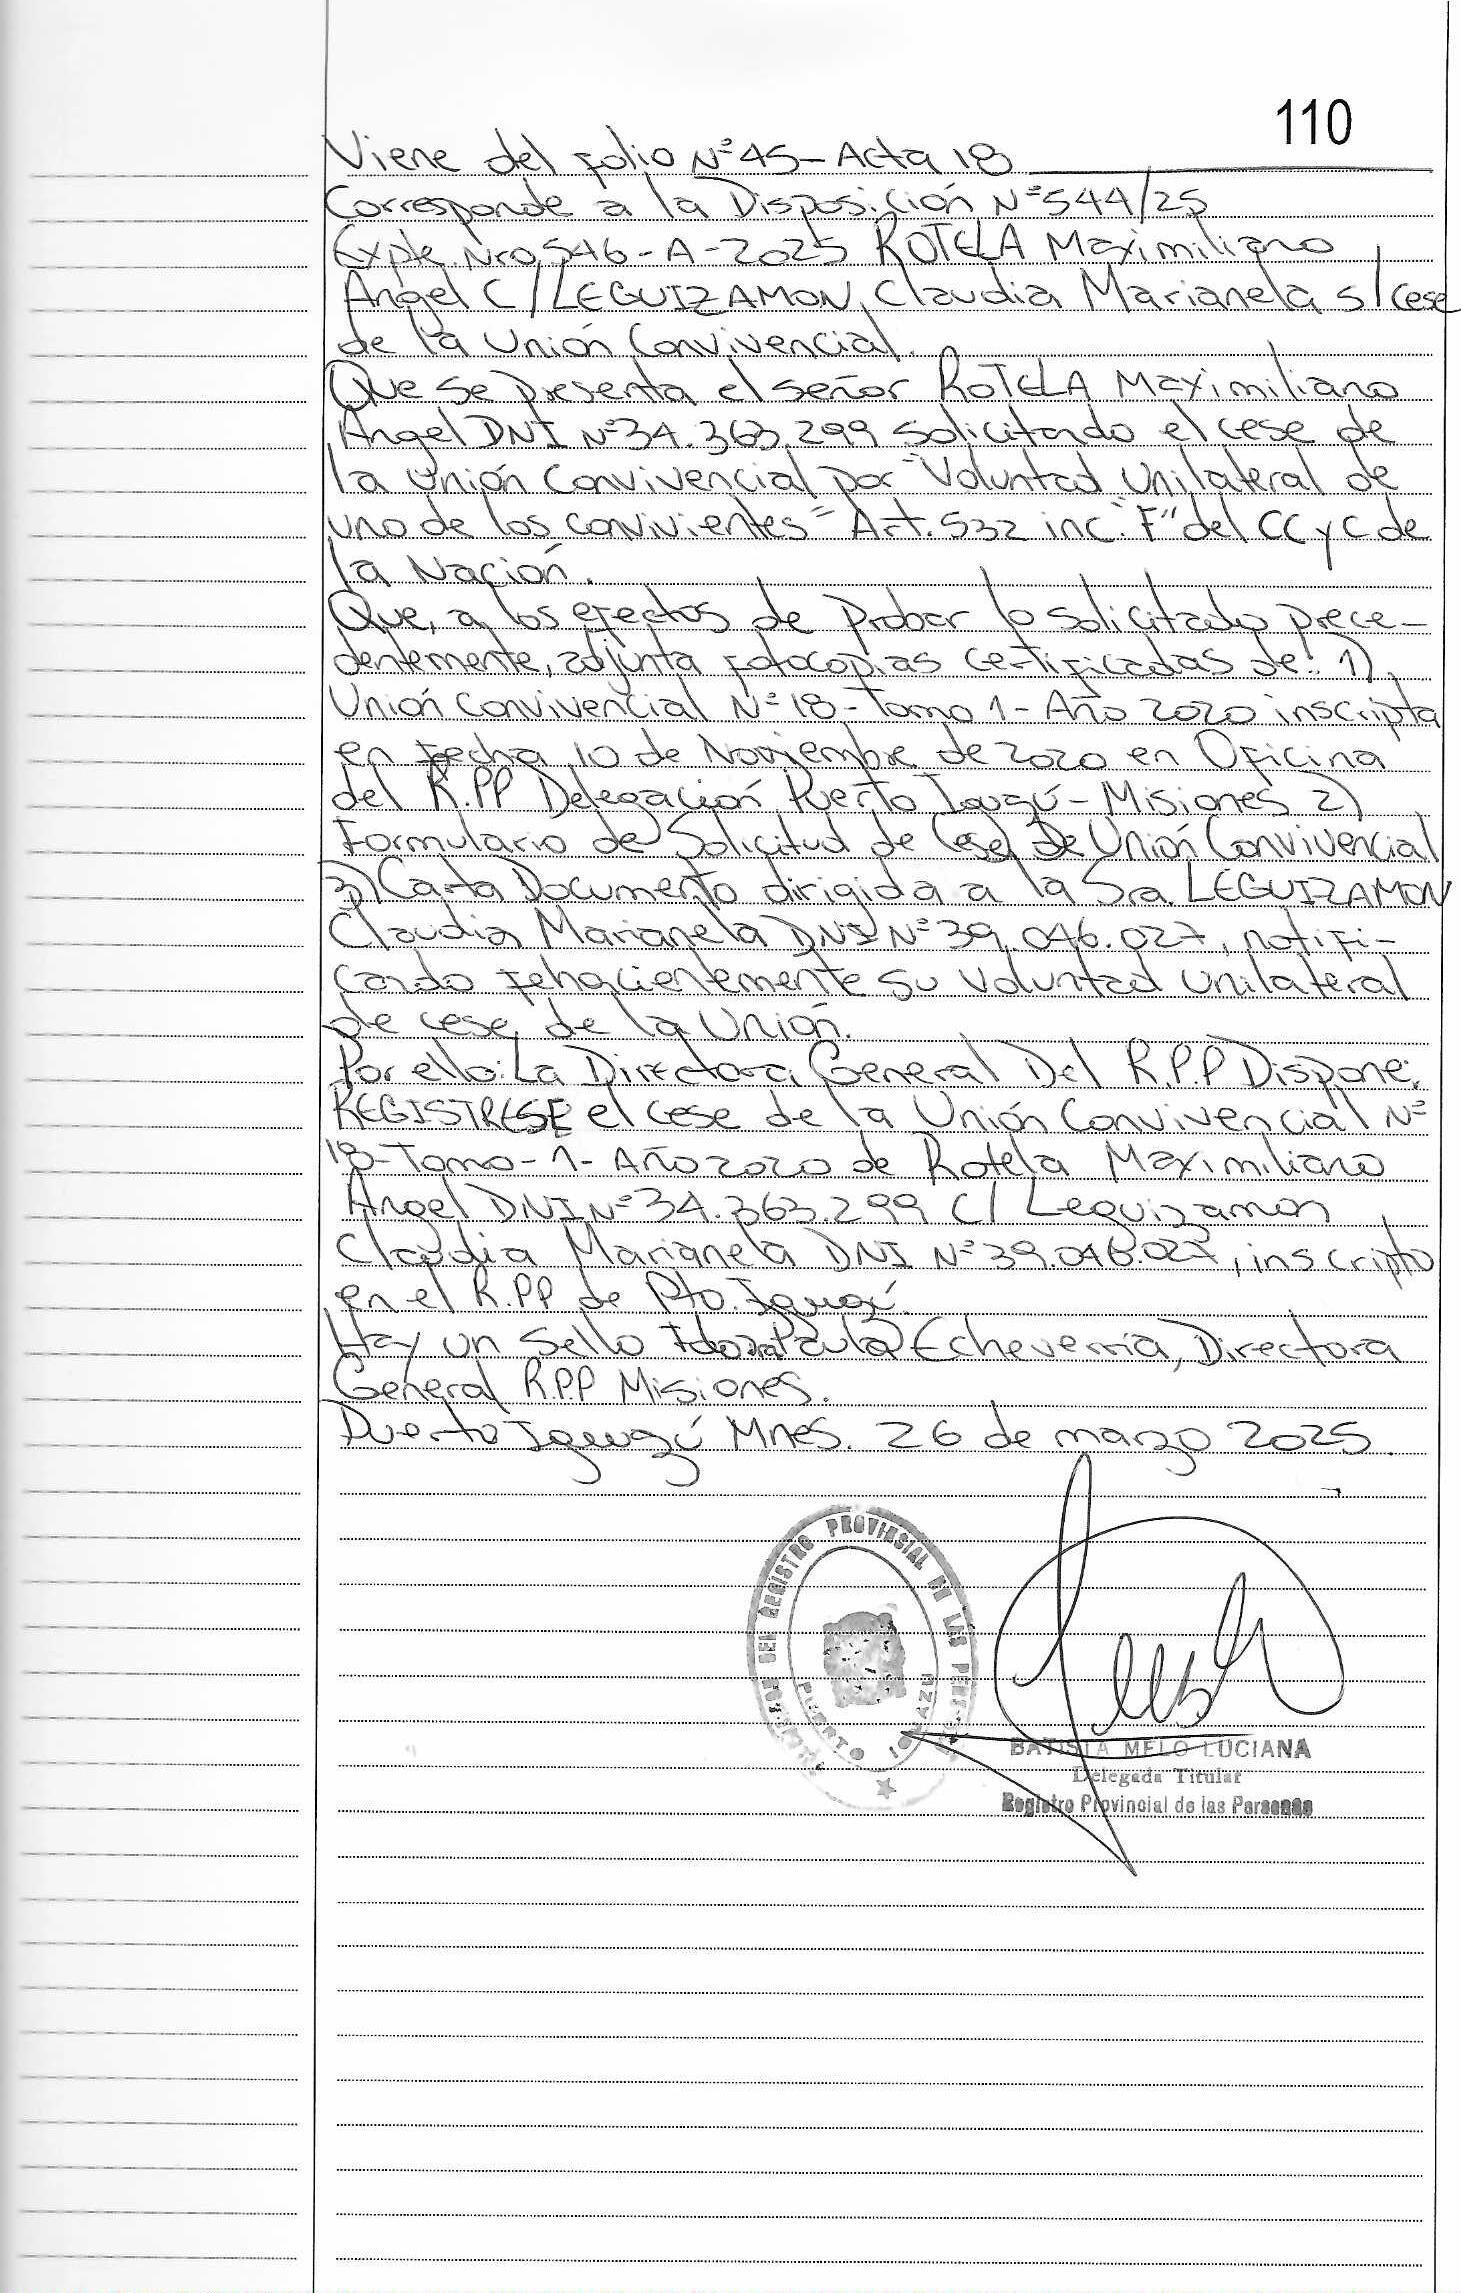 110
Viene del folio N° 45 - Acta 18
Corresponde a la Disposición N° 544/25
Expte. Nro 546-A-2025 ROTELA Maximiliano
Angel C/LEGUIZAMON, Claudia Marianela s/cese
de la Unión Convivencial.
Que se presenta el señor ROTELA Maximiliano
Angel DNI N° 34.363.299 solicitando el cese de
la unión Convivencial por "Voluntad Unilateral de
uno de los convivientes" Art. 532 inc. "F" del CC y C de
la Nación.
Que, a los efectos de probar lo solicitado prece-
dentemente, adjunta fotocopias certificadas de: 1)
Unión Convivencial N° 18 - Tomo 1 - Año 2020 inscripta
en fecha 10 de Noviembre de 2020 en Oficina
del R.PP Delegación Puerto Iguazú - Misiones 2)
Formulario de Solicitud de Cese de Unión Convivencial
3) Carta Documento dirigida a la Sra. LEGUIZAMON
Claudia Marianela DNI N° 39.046.027, notifi-
cando fehacientemente su voluntad unilateral
de cese de la Unión.
Por ello: La Directora General Del R.P.P Dispone:
REGISTRESE el cese de la Unión Convivencial N°
18-Tomo-1-Año 2020 de Rotela Maximiliano
Angel DNI N° 34.363.299 C/ Leguizamon
Claudia Marianela DNI N° 39.046.027, inscripto
en el R.PP de Pto. Iguazú.
Hay un Sello Paula Echeverria, Directora
General R.P.P Misiones.
Puerto Iguazú Mnes. 26 de marzo 2025.
REGISTRO PROVINCIAL DE LAS
PUERTO IGUAZU
BATISTA MELO LUCIANA
Delegada Titular
Registro Provincial de las Personas